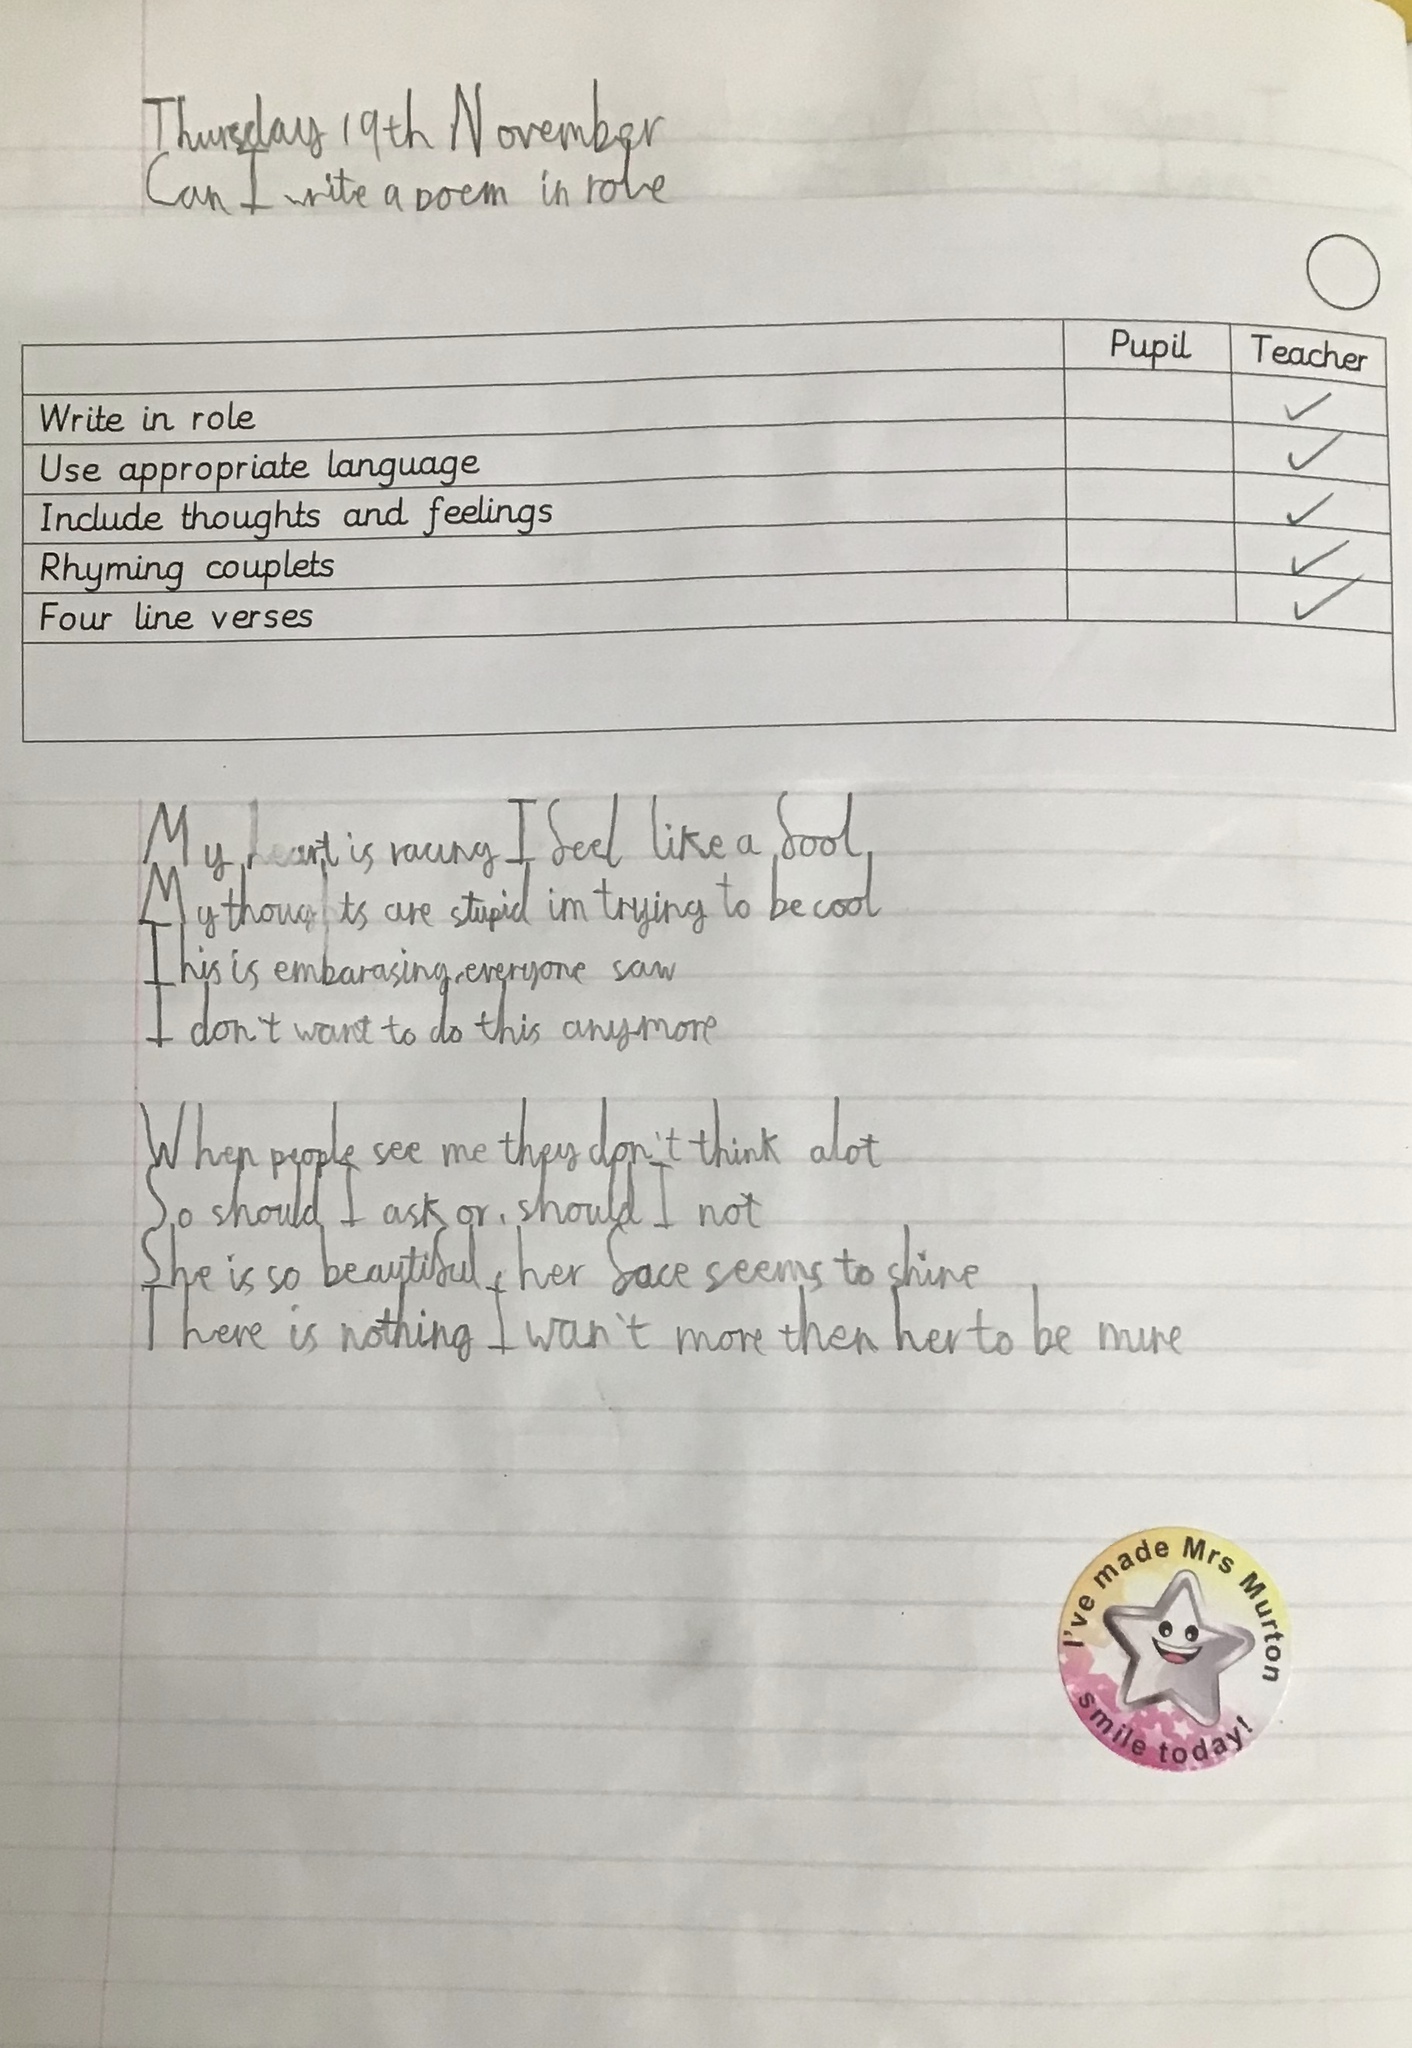 Thursday 19th November
Can I write a poem in role
Pupil Teacher
Write in role
Use appropriate language
Include thoughts and feelings
Rhyming couplets
Four line verses
My heart is racing I feel like a fool,
My thoughts are stupid im trying to be cool
This is embarasing, everyone saw
I don't want to do this anymore
When people see me they don't think alot
So should I ask or, should I not
She is so beautiful, her face seems to shine
There is nothing I wan't more then her to be mine
I've made Mrs Murton
smile today!